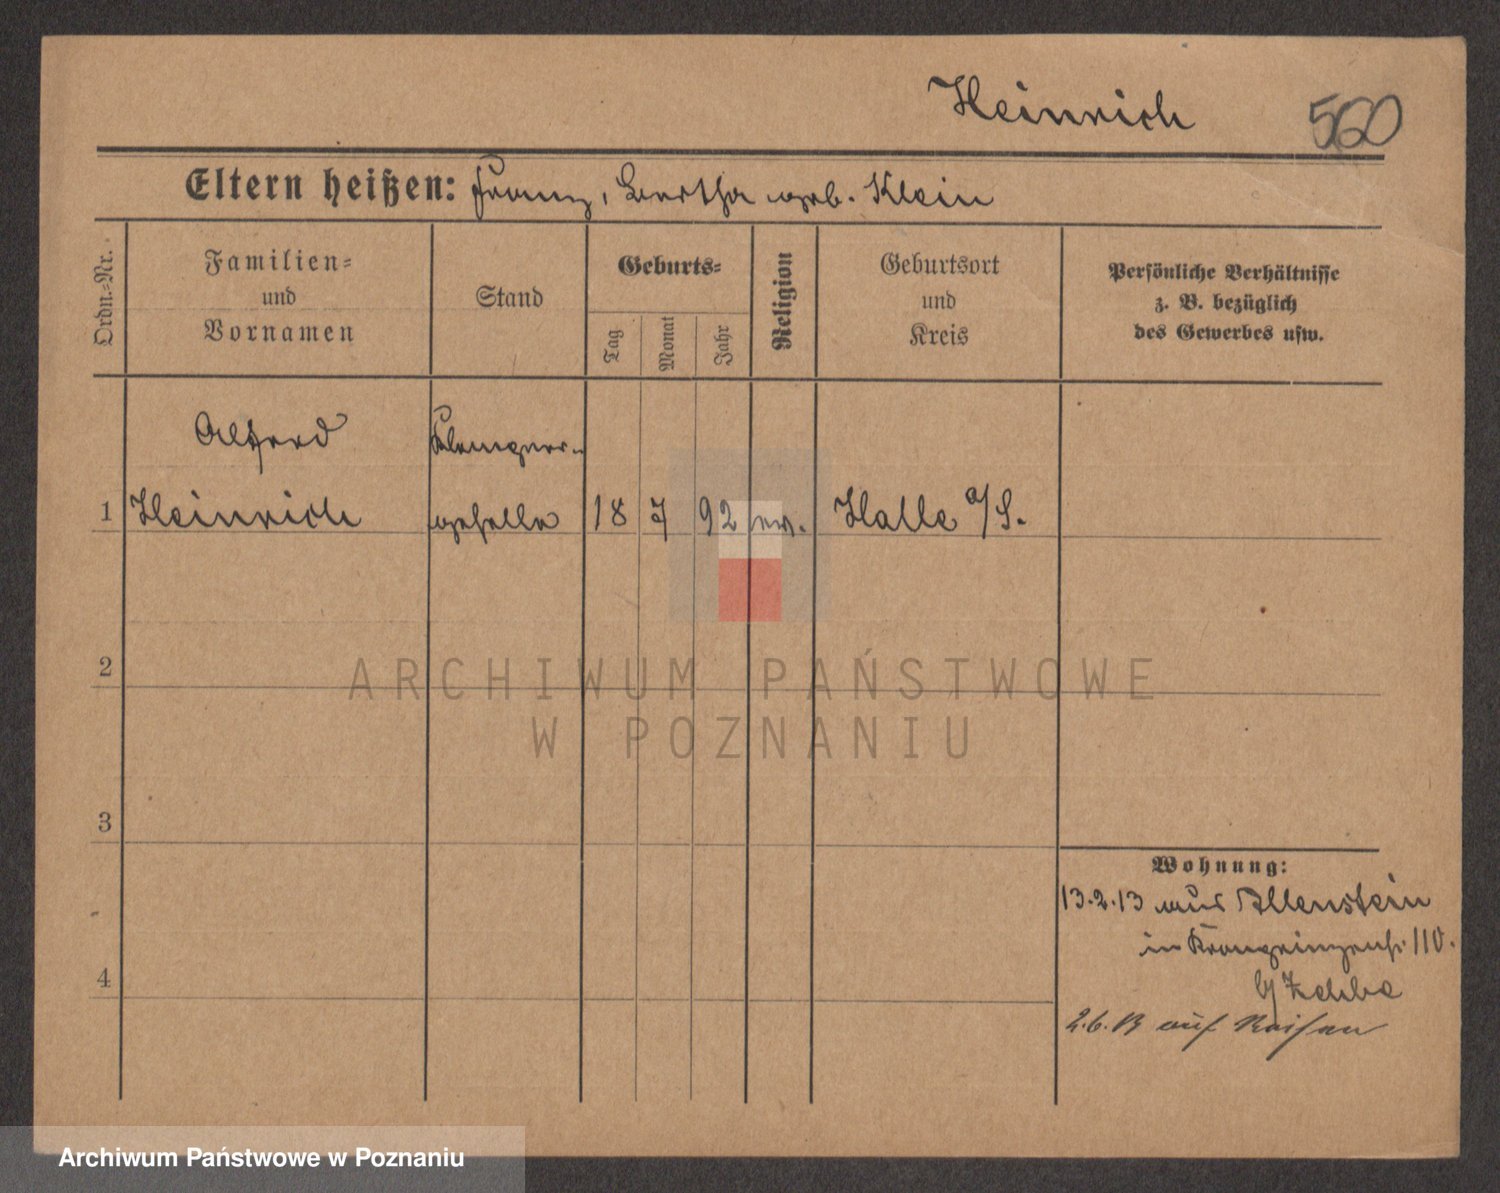 Heinrich 560
Eltern heißen: Franz, Bertha geb. Klein
Ordn.-Nr.
Familien-
und
Vornamen
Stand
Geburts-
Tag
Monat
Jahr
Religion
Geburtsort
und
Kreis
Persönliche Verhältnisse
z. B. bezüglich
des Gewerbes usw.
Alfred Klempner-
1 Heinrich geselle 18 7 92 ev. Halle a/S.
2
ARCHIWUM PAŃSTWOWE
W POZNANIU
3
Wohnung:
13.2.13 aus Allenstein
in Kronprinzenstr. 110.
4
b/
2.6.13 auf Reisen
Archiwum Państwowe w Poznaniu